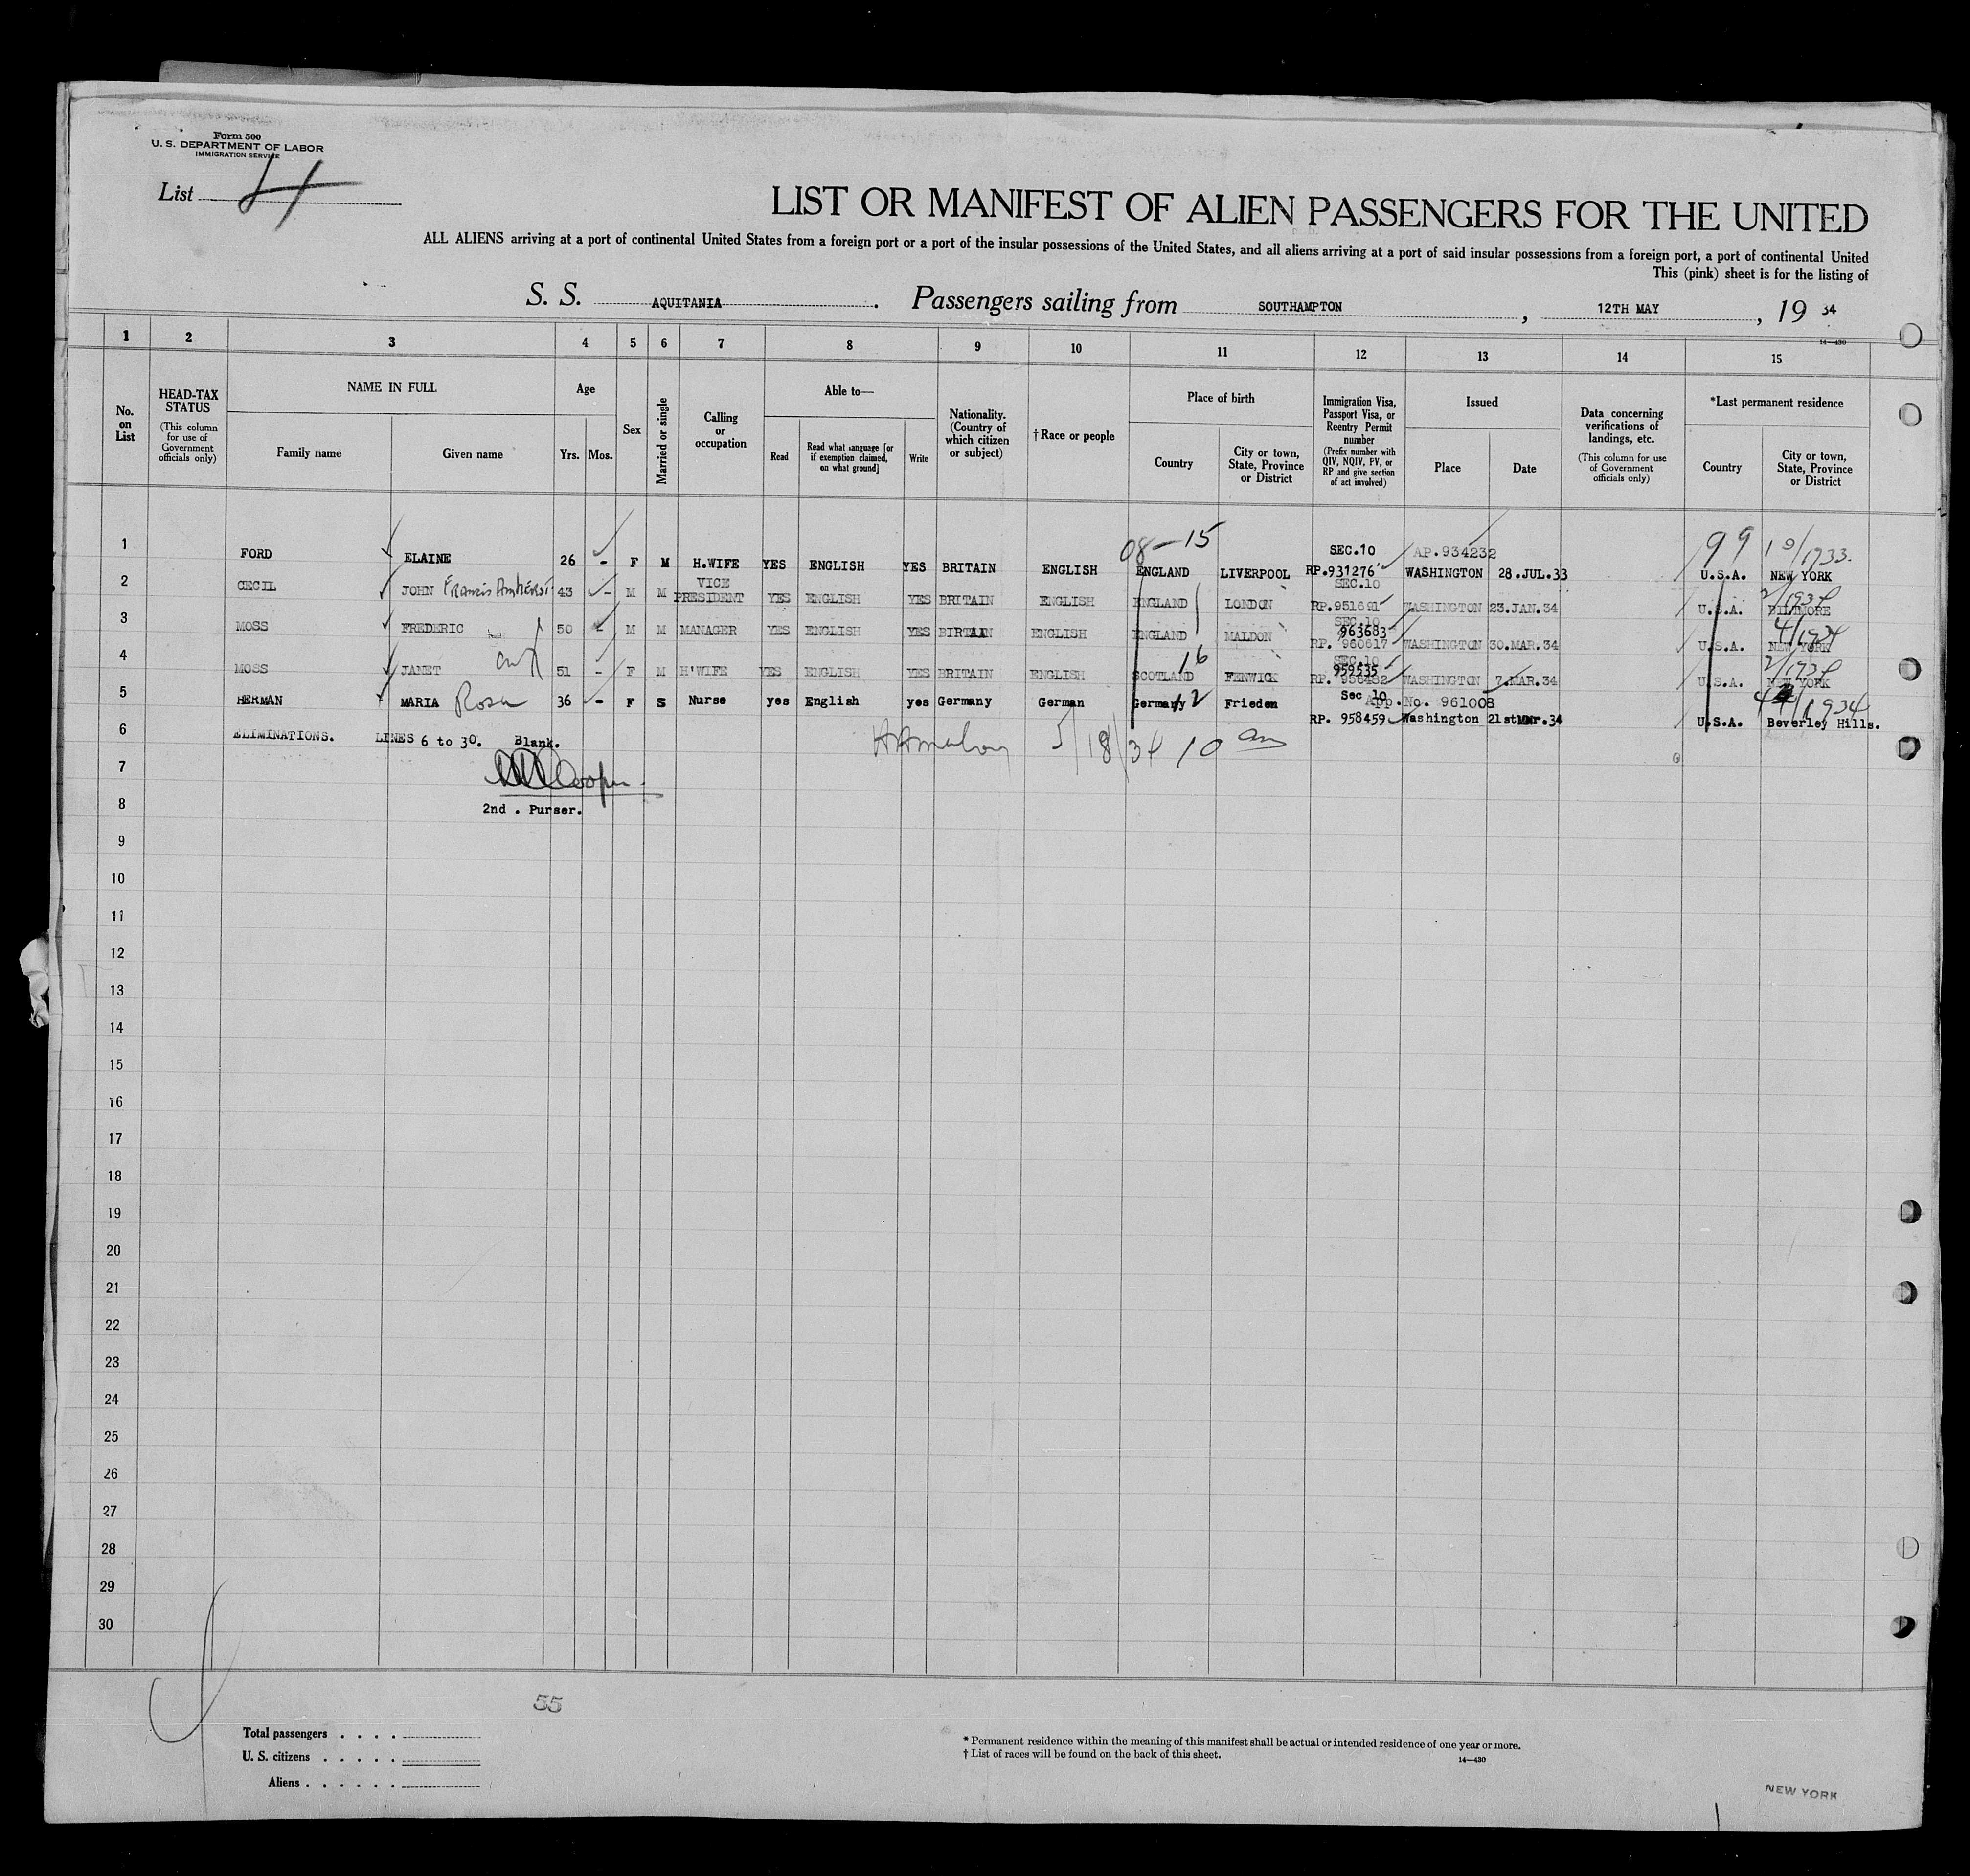 Form 500
U. S. DEPARTMENT OF LABOR
IMMIGRATION SERVICE
List 4
LIST OR MANIFEST OF ALIEN PASSENGERS FOR THE UNITED
ALL ALIENS arriving at a port of continental United States from a foreign port or a port of the insular possessions of the United States, and all aliens arriving at a port of said insular possessions from a foreign port, a port of continental United
This (pink) sheet is for the listing of
S. S. AQUITANIA. Passengers sailing from SOUTHAMPTON, 12TH MAY, 19 34
14—430
1 2 3 4 5 6 7 8 9 10 11 12 13 14 15
No. on List
HEAD-TAX STATUS
(This column for use of Government officials only)
NAME IN FULL
Family name
Given name
Age
Yrs. Mos.
Sex
Married or single
Calling or occupation
Able to—
Read
Read what language [or if exemption claimed, on what ground]
Write
Nationality. (Country of which citizen or subject)
†Race or people
Place of birth
Country
City or town, State, Province or District
Immigration Visa, Passport Visa, or Reentry Permit number
(Prefix number with QIV, NQIV, PV, or RP and give section of act involved)
Issued
Place
Date
Data concerning verifications of landings, etc.
(This column for use of Government officials only)
*Last permanent residence
Country
City or town, State, Province or District
08-15 SEC.10 AP.934232 99 10/1933.
1 FORD ELAINE 26 - F M H.WIFE YES ENGLISH YES BRITAIN ENGLISH ENGLAND LIVERPOOL RP.931276 WASHINGTON 28.JUL.33 U.S.A. NEW YORK
SEC.10 2/1934
2 CECIL JOHN Francis Amherst 43 - M M VICE PRESIDENT YES ENGLISH YES BRITAIN ENGLISH ENGLAND LONDON RP.951691 WASHINGTON 23.JAN.34 U.S.A. BILTMORE
SEC.10 963683 4/1934
3 MOSS FREDERIC 50 - M M MANAGER YES ENGLISH YES BIRTAIN ENGLISH ENGLAND MALDON RP. 960617 WASHINGTON 30.MAR.34 U.S.A. NEW YORK
16 SEC.10 959535 2/1934
4 MOSS JANET 51 - F M H'WIFE YES ENGLISH YES BRITAIN ENGLISH SCOTLAND FENWICK RP. 956482 WASHINGTON 7.MAR.34 U.S.A. NEW YORK
Sec 10 App.No. 961008 1934
5 HERMAN MARIA Rosa 36 - F S Nurse yes English yes Germany German Germany 12 Frieden RP. 958459 Washington 21stMar.34 U.S.A. Beverley Hills.
6 ELIMINATIONS. LINES 6 to 30. Blank.
5/18/34 10 am
7
Cooper
8 2nd . Purser.
9
10
11
12
13
14
15
16
17
18
19
20
21
22
23
24
25
26
27
28
29
30
55
Total passengers . . . .
U. S. citizens . . . . .
Aliens . . . . . .
* Permanent residence within the meaning of this manifest shall be actual or intended residence of one year or more.
† List of races will be found on the back of this sheet.
14—430
NEW YORK